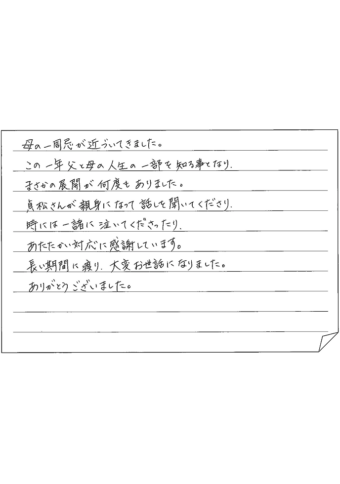 母の一周忌が近づいてきました。
この一年父と母の人生の一部を知る事となり、
まさかの展開が何度もありました。
貞松さんが親身になって話しを聞いてくださり、
時には一緒に泣いてくださったり、
あたたかい対応に感謝しています。
長い期間に渡り、大変お世話になりました。
ありがとうございました。